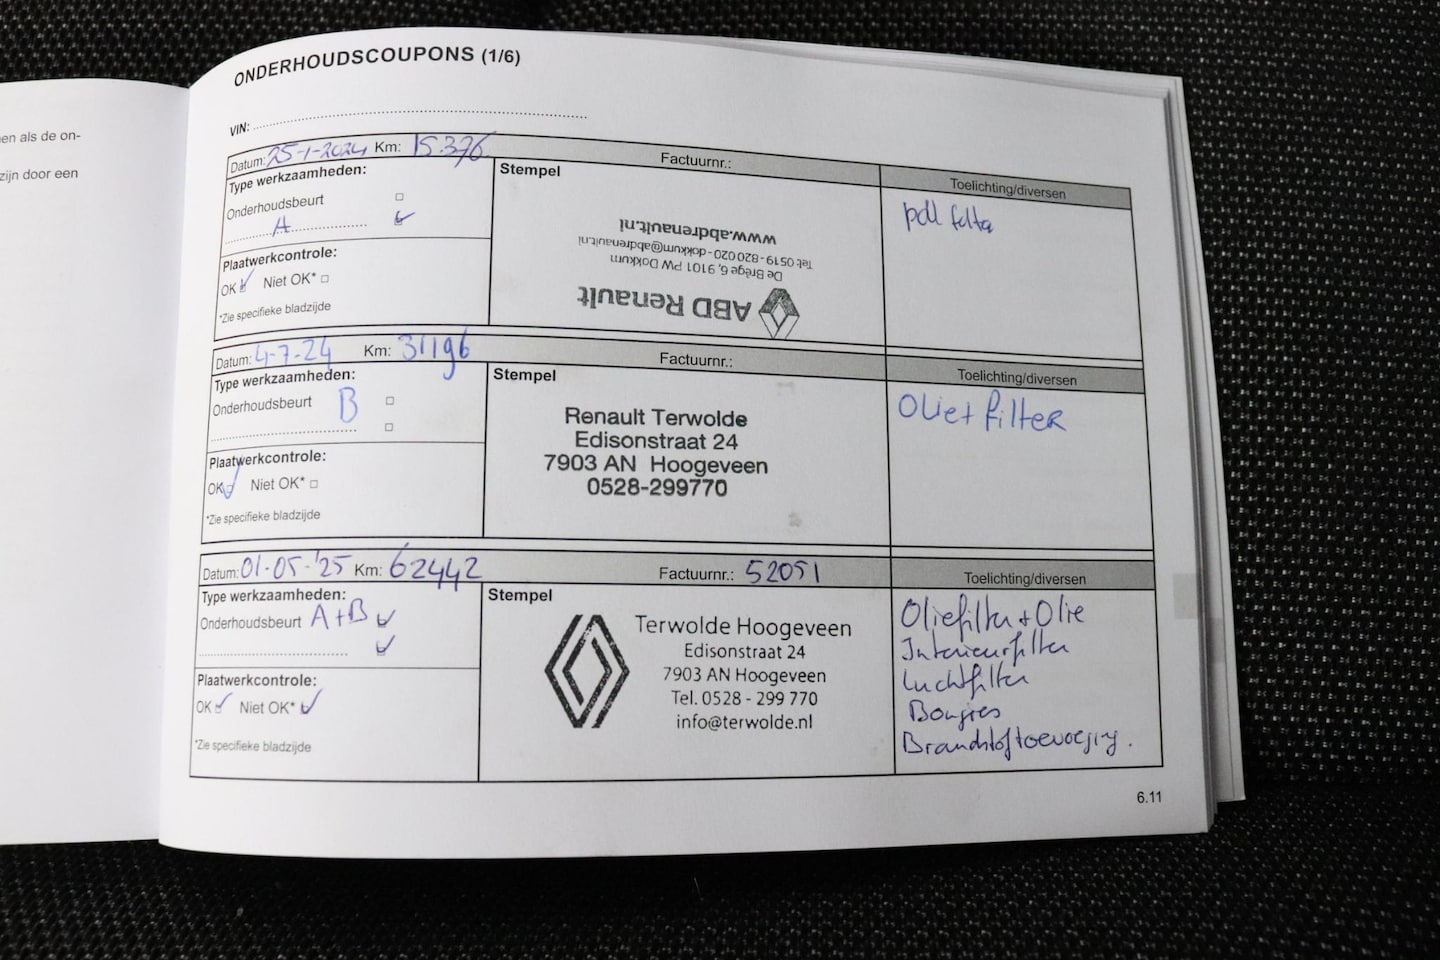 en als de on-
zijn door een
ONDERHOUDSCOUPONS (1/6)
VIN:
Datum: 25-1-2024 Km: 15.376 Factuurnr.:
Type werkzaamheden:
Onderhoudsbeurt
A
Plaatwerkcontrole:
OK Niet OK*
*Zie specifieke bladzijde
Stempel
ABD Renault
De Brêge 6, 9101 PW Dokkum
Tel: 0519 - 820 020 - dokkum@abdrenault.nl
www.abdrenault.nl
Toelichting/diversen
pdl
Datum: 4-7-24 Km: 31196 Factuurnr.:
Type werkzaamheden:
Onderhoudsbeurt B
Plaatwerkcontrole:
OK Niet OK*
*Zie specifieke bladzijde
Stempel
Renault Terwolde
Edisonstraat 24
7903 AN Hoogeveen
0528-299770
Toelichting/diversen
Olie + filter
Datum: 01-05-'25 Km: 62442 Factuurnr.: 52051
Type werkzaamheden:
Onderhoudsbeurt A+B
Plaatwerkcontrole:
OK Niet OK*
*Zie specifieke bladzijde
Stempel
Terwolde Hoogeveen
Edisonstraat 24
7903 AN Hoogeveen
Tel. 0528 - 299 770
info@terwolde.nl
Toelichting/diversen
Oliefilter + Olie
Interieurfilter
Luchtfilter
Bougies
Brandstoftoevoeging.
6.11